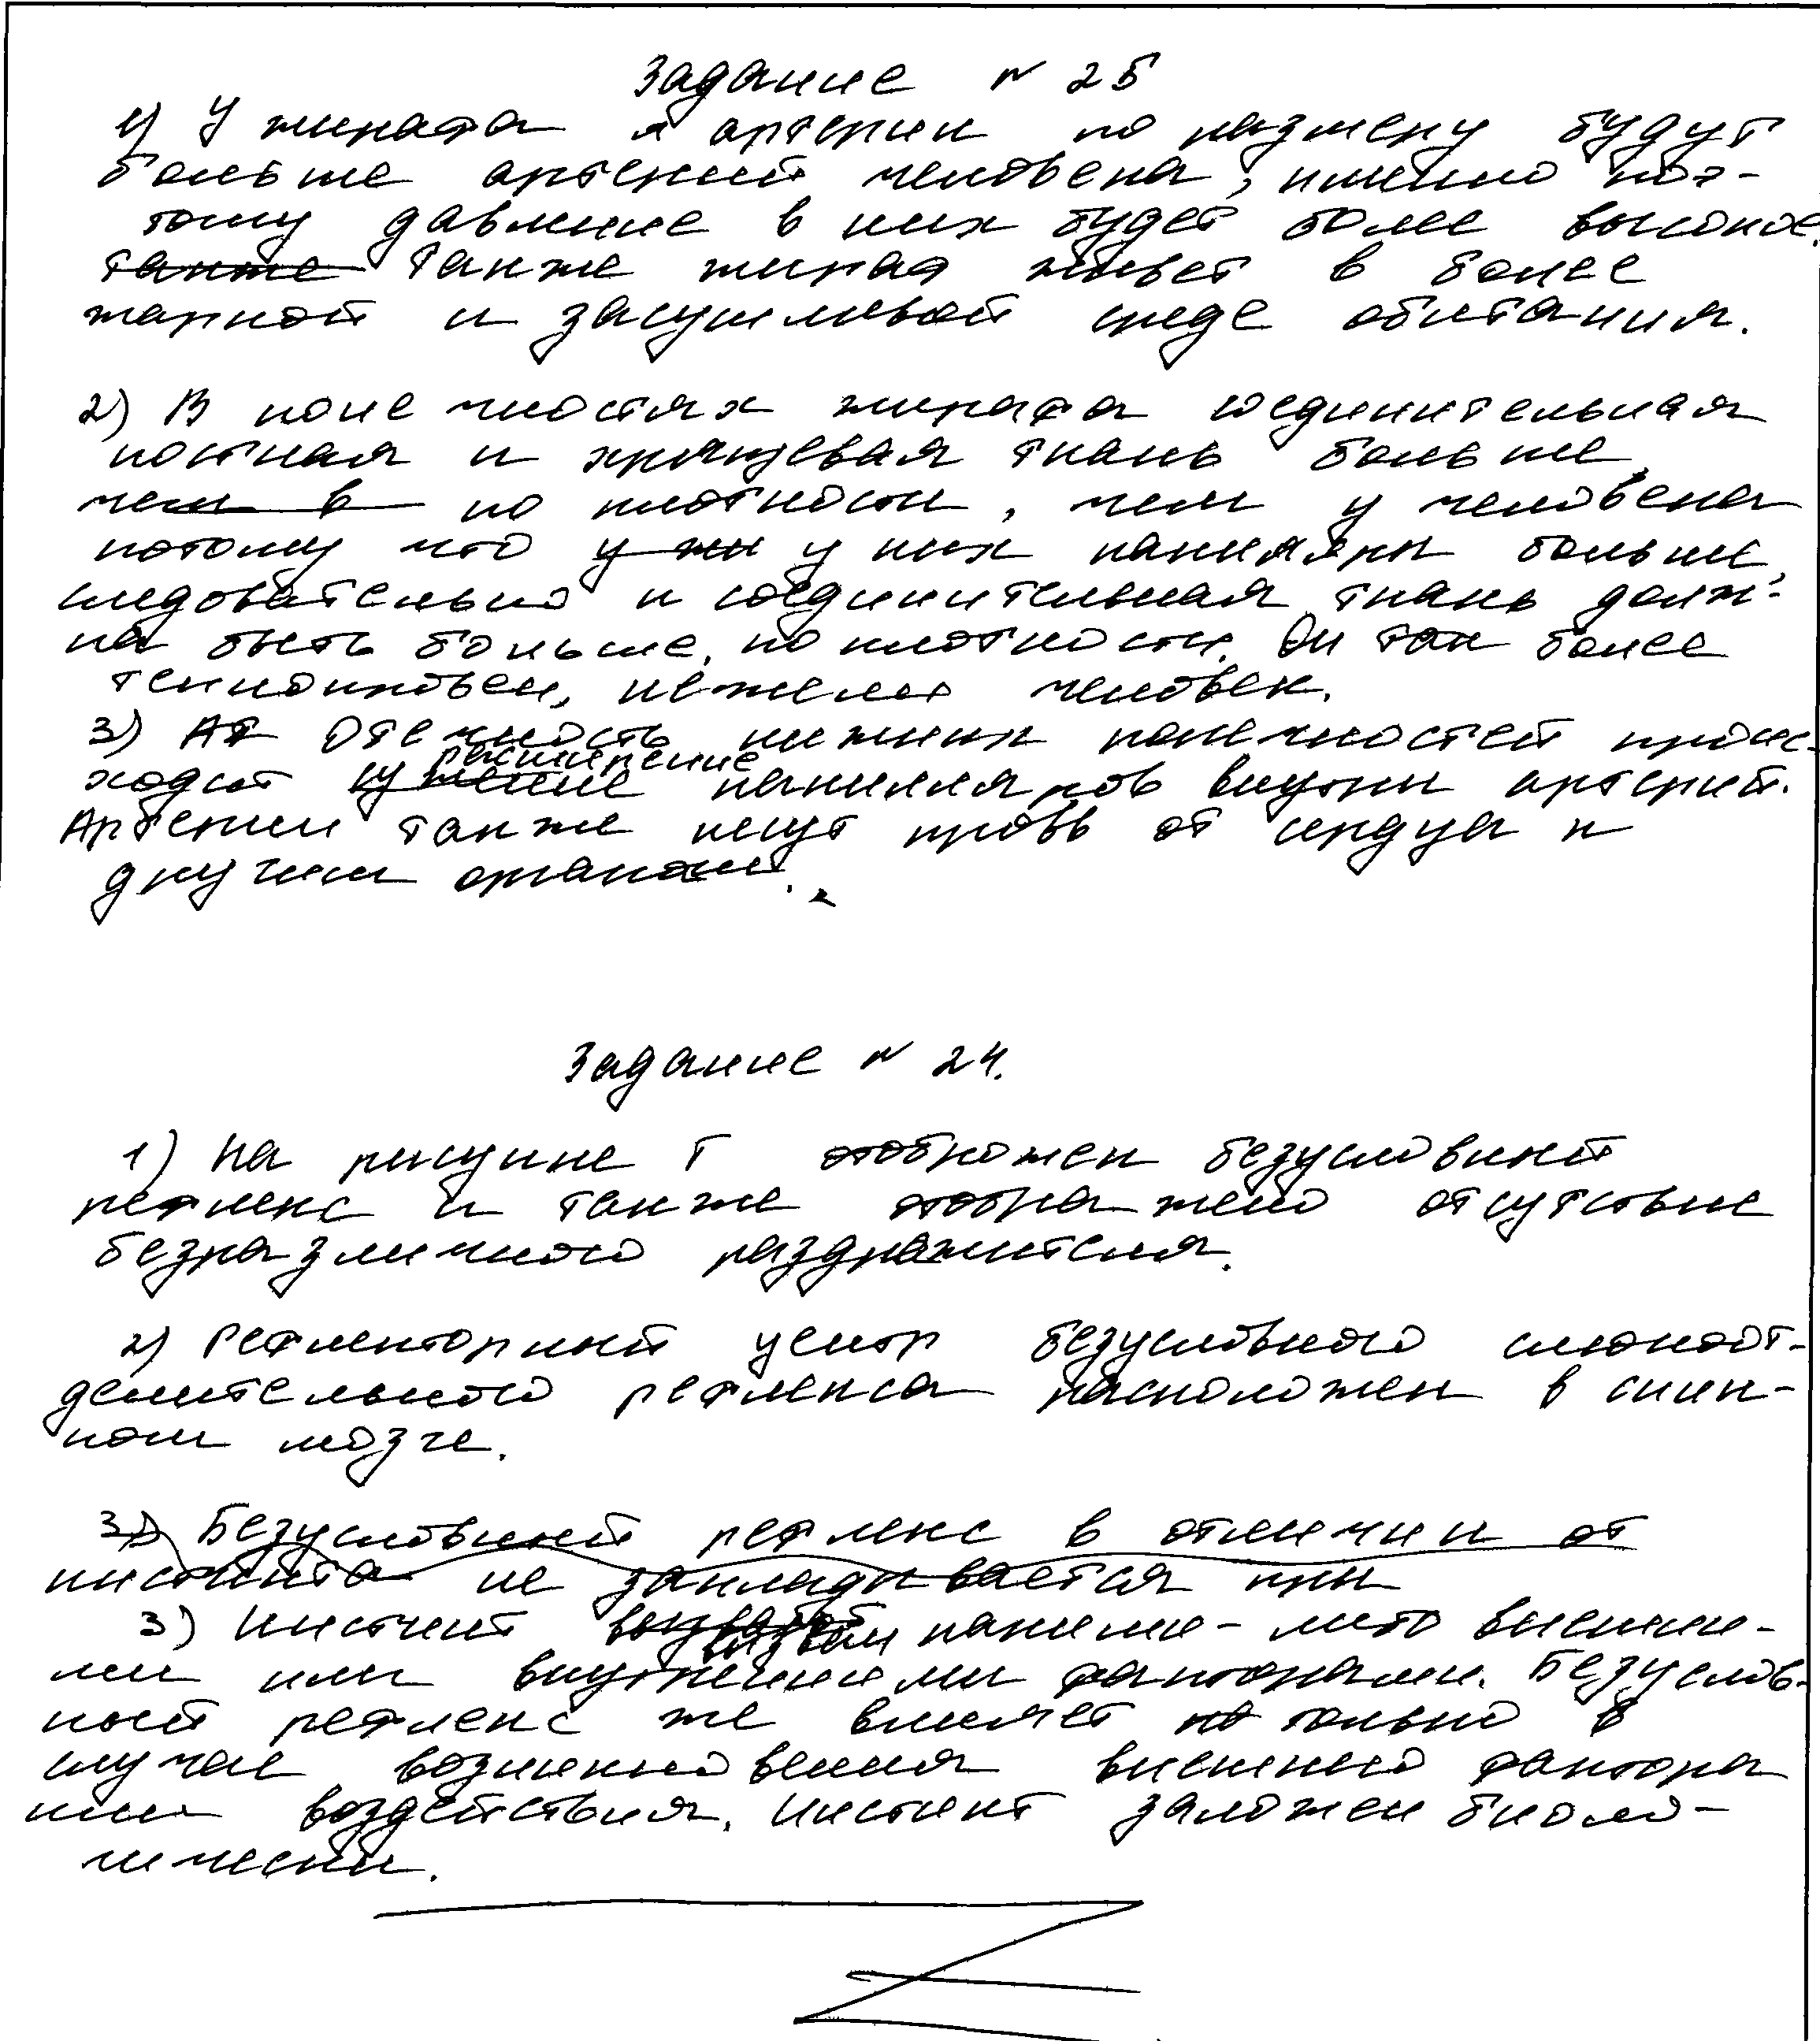 Задание № 25
1) У жирафа артерии по размеру будут
больше артерий человека, именно поэ-
тому давление в них будет более высокое.
также Также жираф живет в более
жаркой и засушливой среде обитания.
2) В конечностях жирафа соединительная
костная и хрящевая ткань больше
чем в по плотности, чем у человека
потому что у жи у них капиляры больше,
следовательно и соединительная ткань долж-
на быть больше по плотности. Он так более
теплокровен, нежели человек.
3) Ат Отечность нижних конечностей проис-
ходит расширение капилляров внутри артерий.
Артерии также несут кровь от сердца к
другим органам.
Задание № 24.
1) На рисунке Г отображен безусловный
рефлекс и также отображено отсутствие
безразличного раздражителя.
2) Рефлекторный центр безусловного слюноот-
делительного рефлекса расположен в спин-
ном мозге.
3) Безусловный рефлекс в отличии от
инстинкта не закладывается при
3) Инстинт вызван какими-либо внешни-
ми или внутренними факторами. Безуслов-
ный рефлекс же влияет только в
случае возникновения внешнего фактора
или воздействия. Инстинт заложен биоло-
гически.